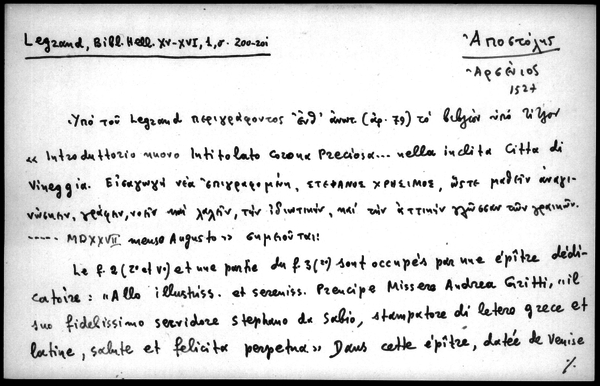 Legrand, Bibl. Hell. XV-XVI, 1, σ. 200-201
Ἀποστόλης
Ἀρσένιος
1527
Ὑπό τοῦ Legrand περιγράφοντος ἐνθ' ἀνωτ (ἀρ. 79) τό βιβλίον ὑπό τίτλον
« Introduttorio nuovo Intitolato Corona Preciosa... nella inclita Citta di
Vineggia. Εἰσαγωγή νέα ἐπιγραφομένη, ΣΤΕΦΑΝΟΣ ΧΡΗΣΙΜΟΣ, ὥστε μαθεῖν ἀναγι-
νώσκειν, γράφειν, νοεῖν καί λαλεῖν, τήν ἰδιωτικήν, καί τήν ἀττικήν γλῶσσαν τῶν γραικῶν.
----- MDXXVII mense Augusto» σημειοῦται:
Le f. 2 (rº et vº) et une partie du f. 3 (rº) sont occupés par une épître dédi-
catoire : «Allo illustriss. et sereniss. Prencipe Missere Andrea Gritti, «il
suo fidelissimo servidore Stephano da Sabio, stampatore di letere grece et
latine, salute et felicita perpetua» Dans cette épître, datée de Venise
%.